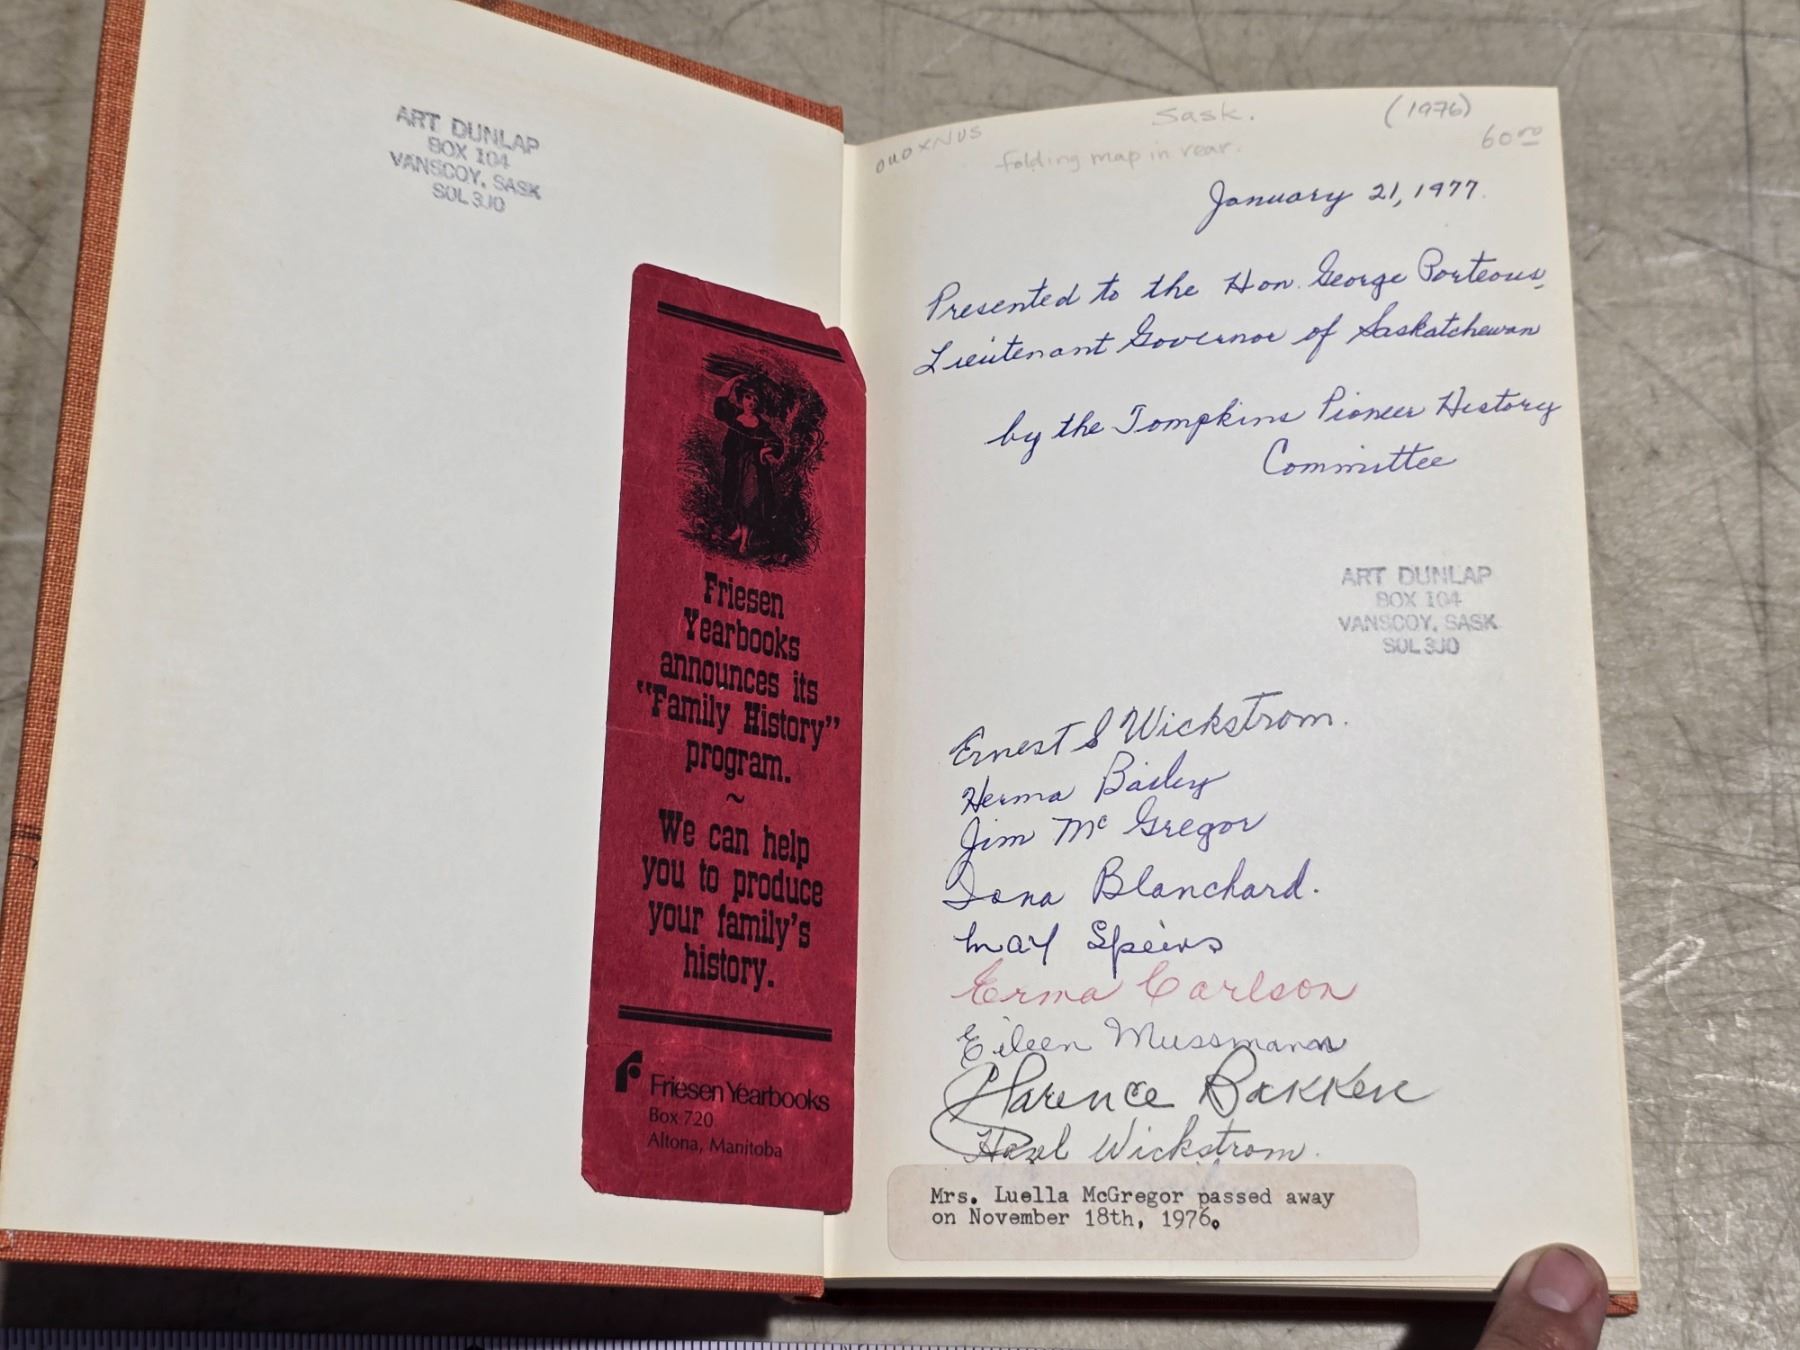 ART DUNLAP
BOX 104
VANSCOY, SASK
S0L 3J0
Friesen
Yearbooks
announces its
"Family History"
program.
~
We can help
you to produce
your family's
history.
Friesen Yearbooks
Box 720
Altona, Manitoba
Sask.
(1976)
60.00
folding map in rear.
January 21, 1977.
Presented to the Hon. George Porteous,
Lieutenant Governor of Saskatchewan
by the Tompkins Pioneer History
Committee
ART DUNLAP
BOX 104
VANSCOY, SASK
S0L 3J0
Ernest S Wickstrom.
Herma Bailey
Jim McGregor
Iona Blanchard.
May Speirs
Erma Carlson
Eileen Mussmann
Clarence Bakken
Hazel Wickstrom.
Mrs. Luella McGregor passed away
on November 18th, 1976.